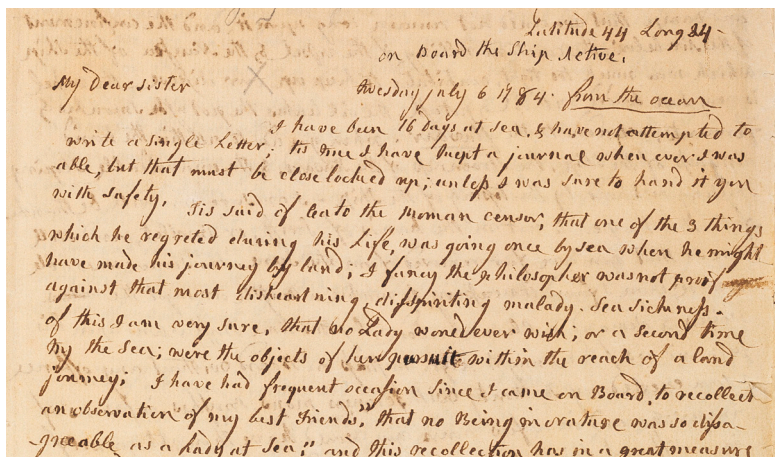 Latitude 44 Long 34-
on Board the Ship Active.
My dear sister Tuesday july 6 1784. from the ocean
I have been 16 days at sea, & have not attempted to
write a single Letter; tis true I have kept a journal when ever I was
able, but that must be close locked up; unless I was sure to hand it you
with safety.
Tis said of Cato the Roman censor, that one of the 3 things
which he regreted during his Life, was going once by sea when he might
have made his journey by land; I fancy the philosopher was not proof
against that most disheartning, dispiriting malady. Sea sickness.
of this I am very sure, that no Lady would ever wish; or a second time
try the Sea; were the objects of her pursuit within the reach of a land
journey; I have had frequent occasion since I came on Board, to recollect
an observation of my best Friends," that no Being in nature was so disa-
-greeable as a Lady at Sea," and this recollection has in a great measure